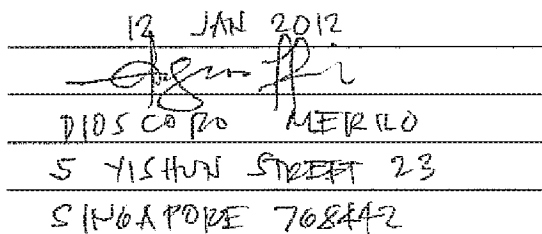 12 JAN 2012
DIOSCORO MERILO
5 YISHUN STREET 23
SINGAPORE 768442